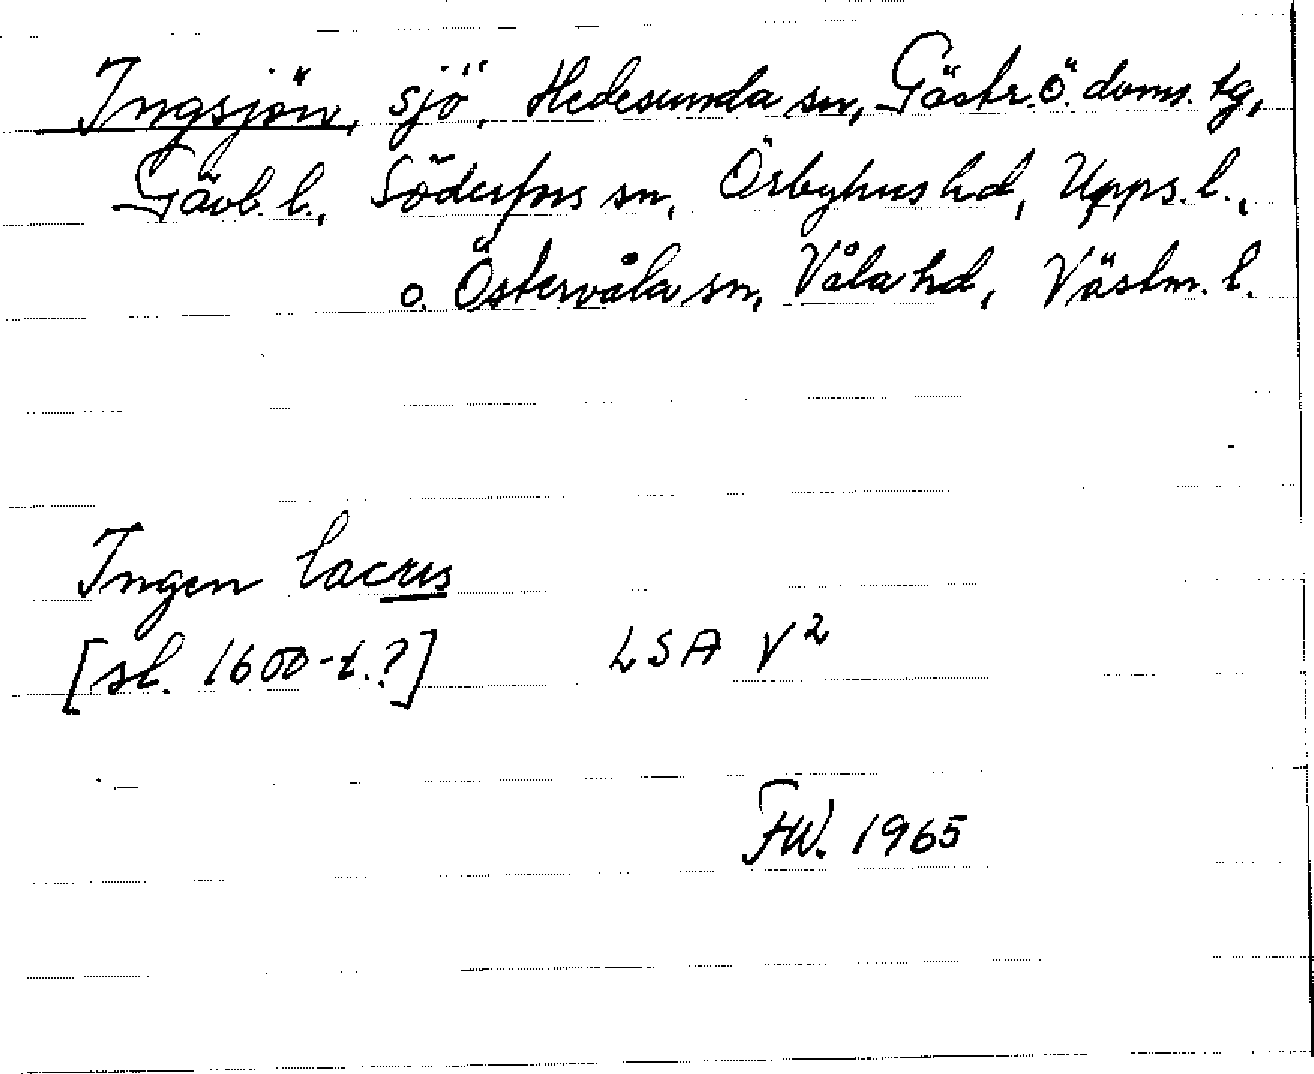 Ingsjön, sjö, Hedesunda sn, Gästr. ö. doms. tg,
Gävb. l., Söderfors sn, Örbyhus hd, Upps. l.,
o. Östervåla sn, Våla hd, Västm. l.
Ingen lacus
[sl. 1600-t.?] LSA V²
FW. 1965